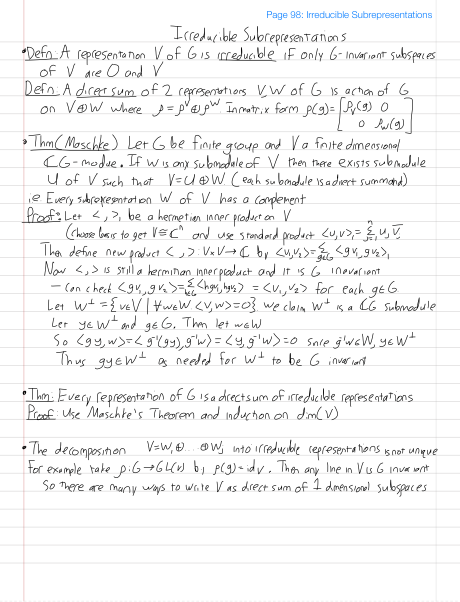 Page 98: Irreducible Subrepresentations
Irreducible Subrepresentations
• Defn: A representation V of G is irreducible if only G-invariant subspaces
of V are 0 and V
Defn: A direct sum of 2 representations V, W of G is action of G
on V⊕W where ρ = ρ^V ⊕ ρ^W In matrix form ρ(g) = [ρ_V(g) 0
0 ρ_W(g)]
• Thm (Maschke) Let G be finite group and V a finite dimensional
ℂG-module. If W is any submodule of V then there exists submodule
U of V such that V = U⊕W (each submodule is a direct summand)
i.e Every subrepresentation W of V has a complement
Proof: Let < , >₁ be a hermetian inner product on V
(choose basis to get V ≅ ℂⁿ and use standard product <u,v>₁ = Σ_{j=1}^n u_j v̄_j
Then define new product < , >: V×V → ℂ by <v₁,v₂> = Σ_{g∈G} <gv₁, gv₂>₁
Now < , > is still a hermitian inner product and it is G invariant
– can check <gv₁, gv₂> = Σ_{h∈G} <hgv₁, hgv₂>₁ = <v₁, v₂> for each g∈G
Let W^⊥ = {v∈V | ∀w∈W <v,w> = 0} we claim W^⊥ is a ℂG submodule
Let y∈W^⊥ and g∈G. Then let w∈W
So <gy, w> = <g⁻¹(gy), g⁻¹w> = <y, g⁻¹w> = 0 since g⁻¹w∈W, y∈W^⊥
Thus gy∈W^⊥ as needed for W^⊥ to be G invariant
• Thm: Every representation of G is a direct sum of irreducible representations
Proof: Use Maschke's Theorem and induction on dim(V)
• The decomposition V = W₁⊕...⊕W_j into irreducible representations is not unique
For example take ρ: G→GL(V) by ρ(g) = id_V. Then any line in V is G invariant
So there are many ways to write V as direct sum of 1 dimensional subspaces